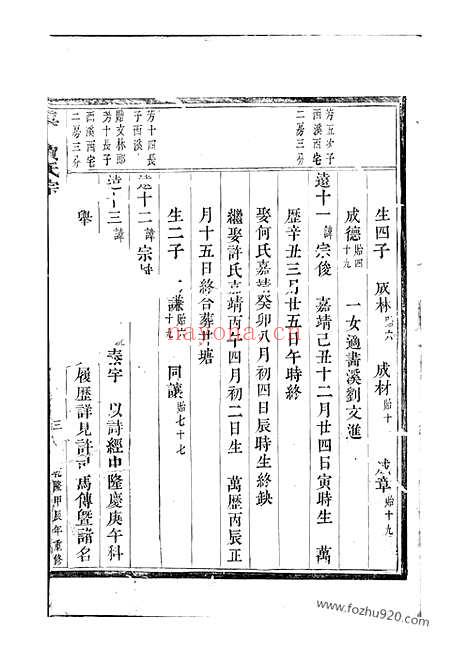 芳五次子
西溪西宅
二房三分
生四子　成林貽六　成材貽十　成章貽十九
成德貽四十九　一女適書溪劉文進
遠十一諱宗俊　嘉靖己丑十二月廿四日寅時生　萬
歷辛丑三月廿五日午時終
娶何氏嘉靖癸卯八月初四日辰時生終缺
繼娶許氏嘉靖丙午四月初二日生　萬歷丙辰正
月十五日終合葬廿塘
生二子　謙貽十六　同讓貽七十七
芳十四長
子西溪
遠十二諱宗
貽文林郎
芳十長子
西溪西宅
二房三分
十三諱
泰宇　以詩經中隆慶庚午科
舉
履歷詳見許司馬傳暨諸名
氏宗
三
乾隆甲辰年重修
nayona.com
www.fozhu920.com